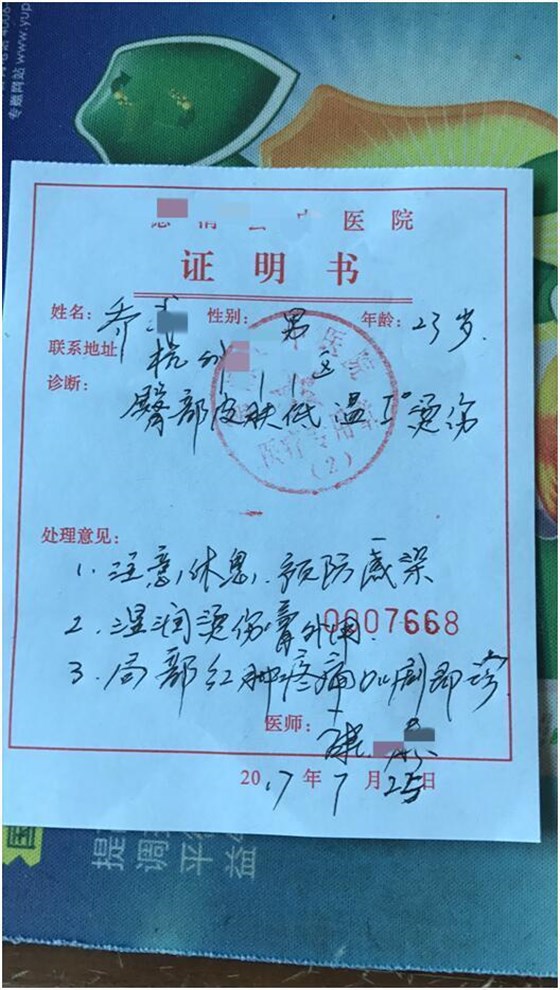 专题网站 www.yup
医院
证明书
姓名: 乔 性别: 男 年龄: 23岁
联系地址 杭州 区
诊断:
臀部皮肤低温I°烫伤
医疗专用章
(2)
处理意见:
1. 注意休息, 预防感染
2. 湿润烫伤膏外用
0007668
3. 局部红肿疼痛加剧即诊
医师:
2017年7月25日
提
调
平
益